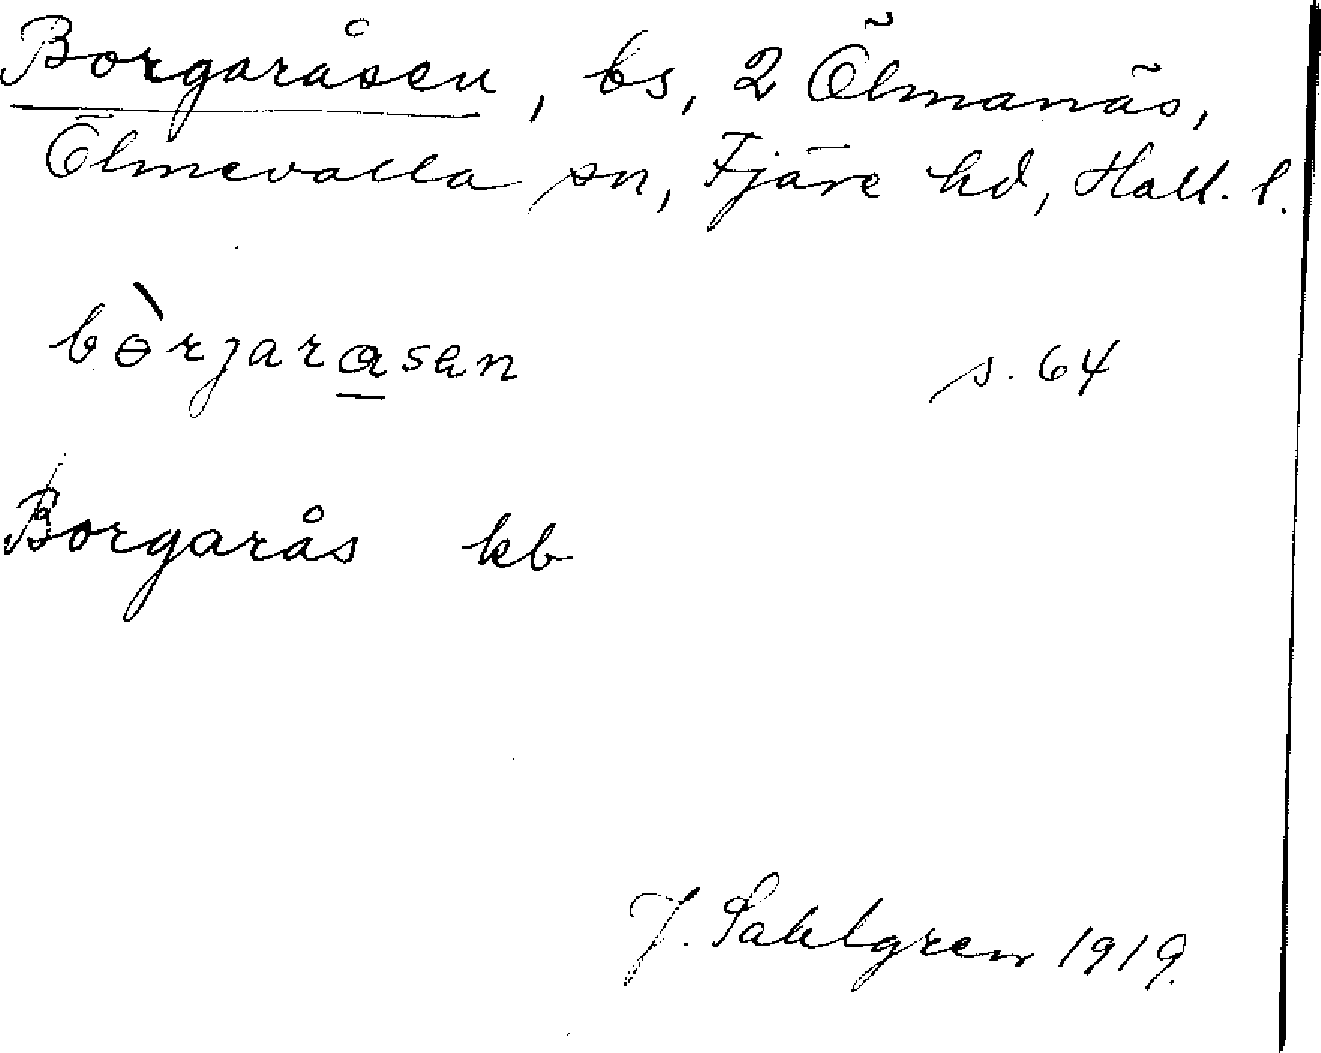 Borgaråsen, bs, 2 Ölmanäs,
Ölmevalla sn, Fjäre hd, Hall. l.
bòrjarasen s. 64
Borgarås kb
J. Sahlgren 1919.